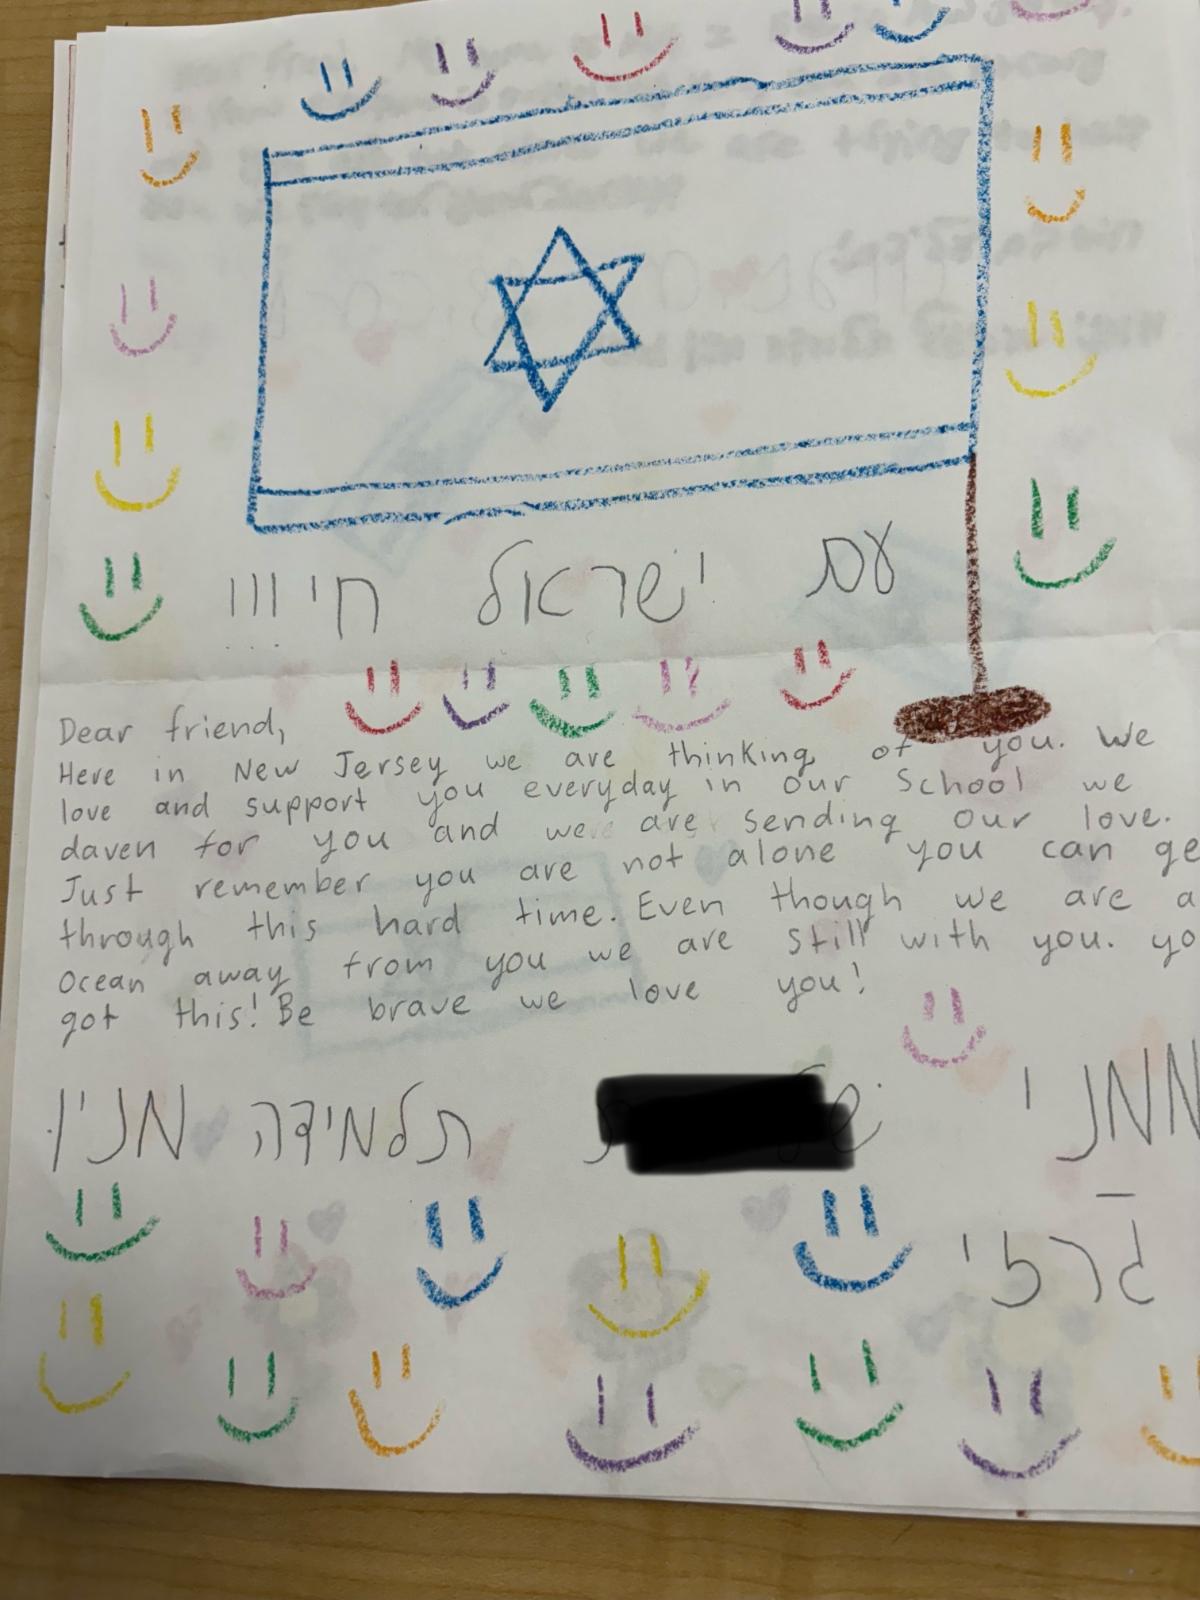 עם ישראל חי!!!
Dear friend,
Here in New Jersey we are thinking of you. We
love and support you everyday in our School we
daven for you and we are sending our love.
Just remember you are not alone you can ge
through this hard time. Even though we are a
Ocean away from you we are still with you. yo
got this! Be brave we love you!
ממני
תלמידה מניו
גרזי